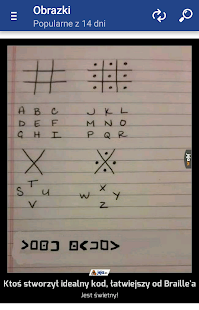 Obrazki
Popularne z 14 dni
A B C J K L
D E F M N O
G H I P Q R
T
S U W X Y
V Z
Ktoś stworzył idealny kod, łatwiejszy od Braille'a
Jest świetny!